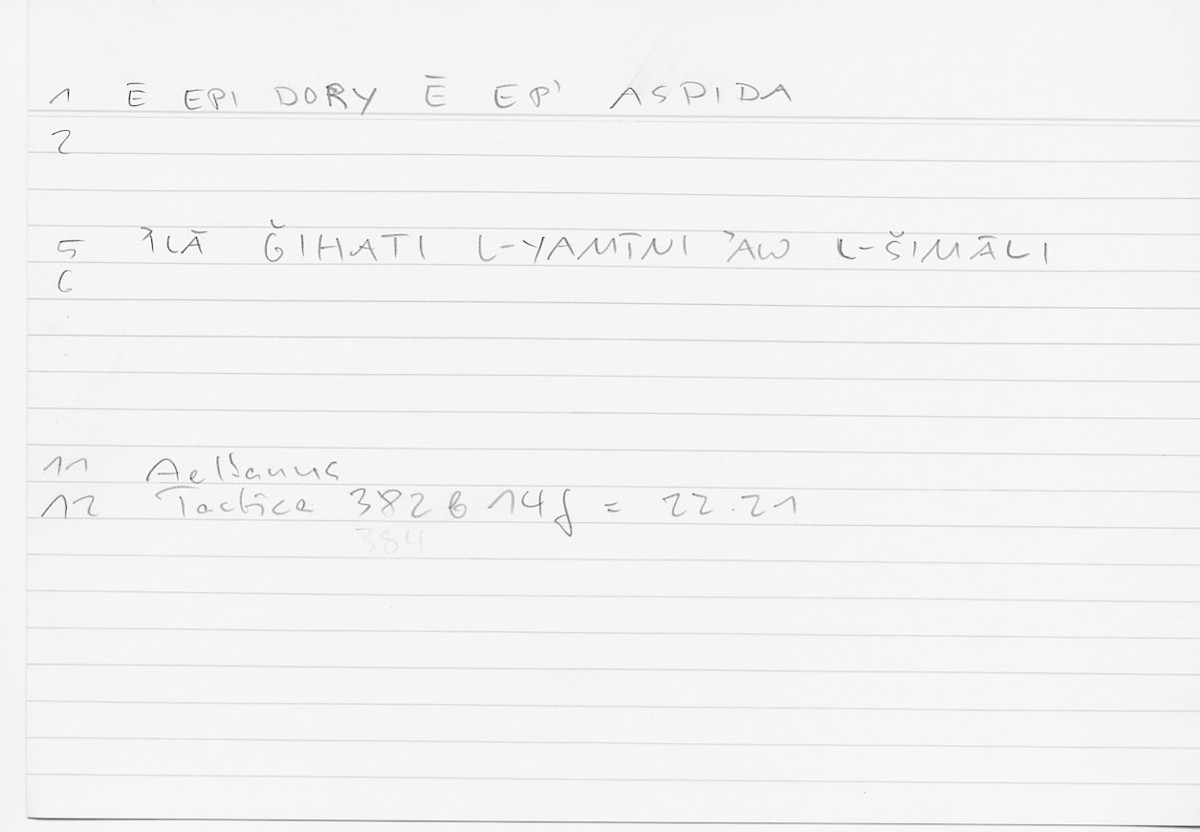 1 Ē EPI DORY Ē EP' ASPIDA
2
5 ʾILĀ ǦIHATI L-YAMĪNI ʾAW L-ŠIMĀLI
6
11 Aelianus
12 Tactica 382 6 14f = 22.21
384